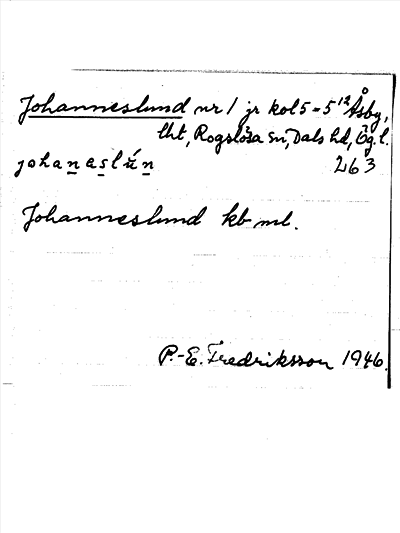 Johanneslund nr 1 jr kol 5-5¹² Åsby,
lht, Rogslösa sn, Dals hd, Ög.l.
johanaslún 263
Johanneslund kb ml.
P.-E. Fredriksson 1946.